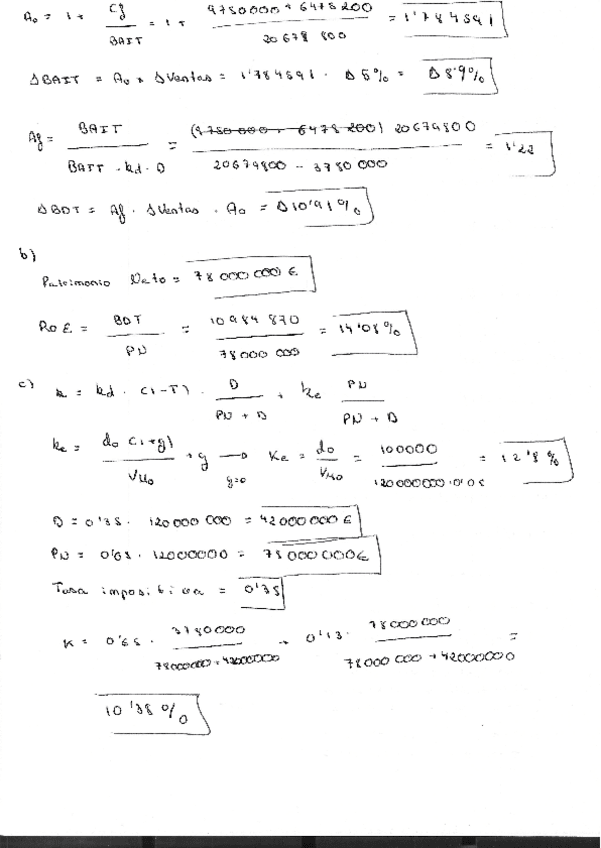 A₀ = 1 + Cf / BAIT = 1 + 9750000 + 6475200 / 20 678 800 = 1'784591
ΔBAIT = A₀ × ΔVentas = 1'784591 · Δ5% = Δ8'9%
Af = BAIT / BAIT - kd · D = (9750000 + 6478200) 20679800 / 20679800 - 3780000 = 1'22
ΔBDT = Af · ΔVentas · A₀ = Δ10'91%
b)
Patrimonio Neto = 78 000 000 €
RoE = BDT / PN = 10984 870 / 78000 000 = 14'08%
c) k = kd · (1-T) · D / PN + D + ke PN / PN + D
ke = do (1+g) / VM₀ + g → g=0 Ke = do / VM₀ = 100000 / 120000000·0'05 = 12'8%
D = 0'35 · 120000 000 = 42000000 €
PN = 0'65 · 12000000 = 78000 000 €
Tasa impositiva = 0'35
K = 0'65 · 3780000 / 78000000 + 42000000 + 0'13 · 78000000 / 78000 000 + 42000000 =
10'38 %